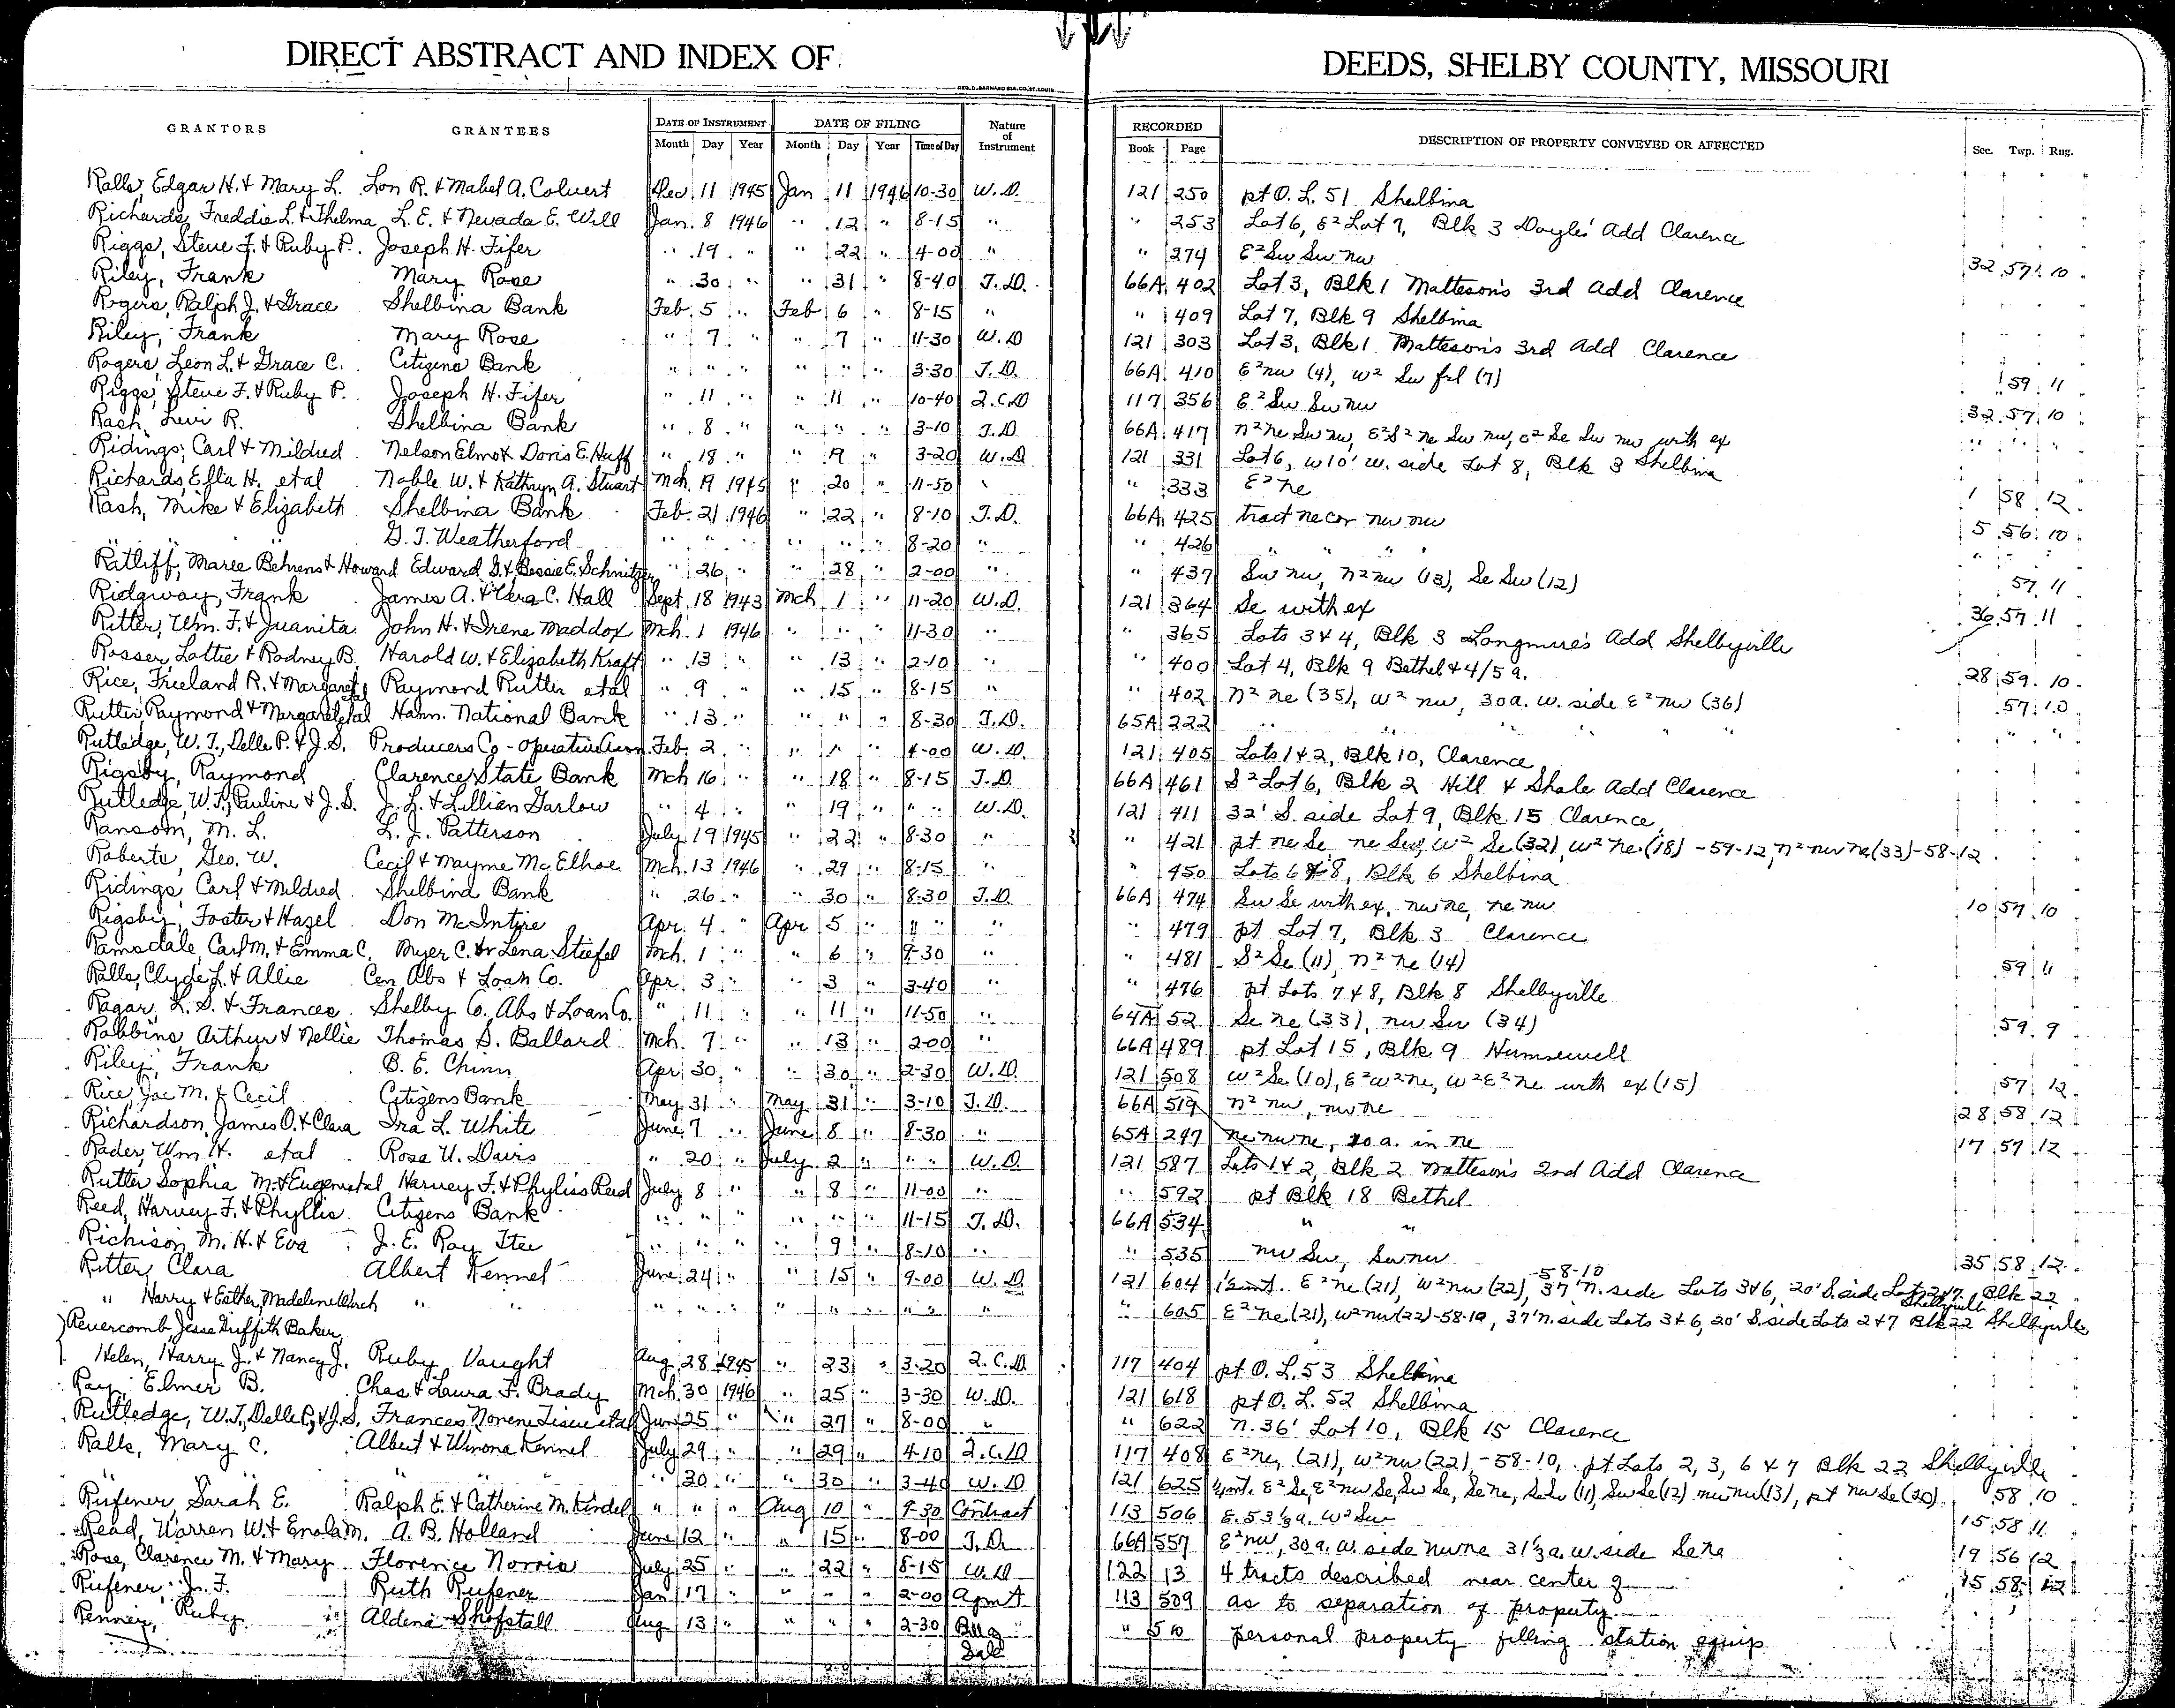 DIRECT ABSTRACT AND INDEX OF DEEDS, SHELBY COUNTY, MISSOURI
GEO. D. BARNARD STA. CO. ST. LOUIS
GRANTORS GRANTEES DATE OF INSTRUMENT DATE OF FILING Nature of Instrument RECORDED DESCRIPTION OF PROPERTY CONVEYED OR AFFECTED Sec. Twp. Rng.
Month Day Year Month Day Year Time of Day Book Page
Ralls, Edgar H. & Mary L. Lon R. & Mabel A. Colvert Dec. 11 1945 Jan 11 1946 10-30 W.D. 121 250 pt O. L. 51 Shelbina
Richards, Freddie L. & Thelma L. E. & Nevada E. Will Jan. 8 1946 " 12 " 8-15 " " 253 Lot 6, E² Lot 7, Blk 3 Doyle's Add Clarence
Riggs, Steve F. & Ruby P. Joseph H. Fifer " 19 " " 22 " 4-00 " " 274 E² Sw Sw nw 32 57 10
Riley, Frank Mary Rose " 30 " " 31 " 8-40 T.D. 66A 402 Lot 3, Blk 1 Matteson's 3rd Add Clarence
Rogers, Ralph J. & Grace Shelbina Bank Feb 5 " Feb 6 " 8-15 " " 409 Lot 7, Blk 9 Shelbina
Riley, Frank Mary Rose " 7 " " 7 " 11-30 W.D 121 303 Lot 3, Blk 1 Matteson's 3rd Add Clarence
Rogers, Leon L. & Grace C. Citizens Bank " " " " " " 3-30 T.D. 66A 410 E² nw (4), w² Sw frl (7) 59 11
Riggs, Steve F. & Ruby P. Joseph H. Fifer " 11 " " 11 " 10-40 Q.C.D 117 356 E² Sw Sw nw 32 57 10
Rash, Levi R. Shelbina Bank " 8 " " " " 3-10 T.D 66A 417 n² ne Sw nw, E² S² ne Sw nw, E² Se Sw nw with ex " " "
Ridings, Carl & Mildred Nelson Elmo & Doris E. Huff " 18 " " 19 " 3-20 W.D 121 331 Lot 6, w 10' w. side Lot 8, Blk 3 Shelbina
Richards, Effa H. etal Noble W. & Kathryn A. Stuart Mch. 19 1945 " 20 " 11-50 " " 333 E² ne 1 58 12
Rash, Mike & Elizabeth Shelbina Bank Feb. 21 1946 " 22 " 8-10 T.D. 66A 425 tract ne cor nw nw 5 56 10
" " G. T. Weatherford " " " " " " 8-20 " " 426 " " " " " " "
Ratliff, Maree Behrens & Howard Edward G. & Bessie E. Schnitzer " 26 " " 28 " 2-00 " " 437 Sw nw, n² nw (13), Se Sw (12) 57 11
Ridgway, Frank James A. & Vera C. Hall Sept. 18 1943 Mch 1 " 11-20 W.D. 121 364 Se with ex 36 57 11
Ritter, Wm. F. & Juanita John H. & Irene Maddox Mch. 1 1946 " " " 11-30 " " 365 Lots 3 & 4, Blk 3 Longmire's Add Shelbyville
Rosser, Lottie & Rodney B. Harold W. & Elizabeth Kraft " 13 " " 13 " 2-10 " " 400 Lot 4, Blk 9 Bethel & 4/5 a. 28 59 10
Rice, Freeland R. & Margaret etal Raymond Rutter etal " 9 " " 15 " 8-15 " " 402 n² ne (35), w² nw, 30a. w. side E² nw (36) 57 10
Rutter, Raymond & Margaret etal Hann. National Bank " 13 " " " " 8-30 T.D. 65A 222 " " " " " "
Rutledge, W. T., Delle P. & J. S. Producers Co-operative Assn. Feb. 2 " " " " 4-00 W.D. 121 405 Lots 1 & 2, Blk 10, Clarence
Rigsby, Raymond Clarence State Bank Mch 16 " " 18 " 8-15 T.D. 66A 461 S² Lot 6, Blk 2 Hill & Shale Add Clarence
Rutledge, W. T., Pauline & J. S. J. L. & Lillian Garlow " 4 " " 19 " " " W.D. 121 411 32' S. side Lot 9, Blk. 15 Clarence
Ransom, M. L. L. J. Patterson July 19 1945 " 22 " 8-30 " " 421 pt ne Se ne Sw, w² Se (32), w² ne (18) -59-12, n² nw ne (33) -58-12
Roberts, Geo. W. Cecil & Mayme McElhoe Mch. 13 1946 " 29 " 8-15 " " 450 Lots 6 & 8, Blk 6 Shelbina
Ridings, Carl & Mildred Shelbina Bank " 26 " " 30 " 8-30 T.D. 66A 474 Sw Se with ex, nw ne, ne nw 10 57 10
Rigsby, Foster & Hazel Don McIntire Apr. 4 " Apr 5 " " " " " 479 pt Lot 7, Blk 3 Clarence
Ramsdale, Carl M. & Emma C. Myer C. or Lena Stiefel Mch. 1 " " 6 " 9-30 " " 481 S² Se (11), n² ne (14) 59 11
Ralls, Clyde L. & Allie Cen Abs & Loan Co. Apr. 3 " " 3 " 3-40 " " 476 pt Lots 7 & 8, Blk 8 Shelbyville
Ragar, L. S. & Frances Shelby Co. Abs & Loan Co. " 11 " " 11 " 11-50 " 64A 52 Se ne (33), nw Sw (34) 59 9
Robbins, Arthur & Nellie Thomas S. Ballard Mch. 7 " " 13 " 2-00 " 66A 489 pt Lot 15, Blk 9 Hunnewell
Riley, Frank B. E. Chinn Apr 30 " " 30 " 2-30 W.D. 121 508 W² Se (10), E² w² ne, W² E² ne with ex (15) 57 12
Rice, Joe M. & Cecil Citizens Bank May 31 " May 31 " 3-10 T.D. 66A 519 n² nw, nw ne 28 58 12
Richardson, James O. & Clara Ira L. White June 7 " June 8 " 8-30 " 65A 247 ne nw ne, 20 a. in ne 17 57 12
Rader, Wm H. etal Rosa U. Davis " 20 " July 2 " " " W.D. 121 587 Lots 1 & 2, Blk 2 Matteson's 2nd Add Clarence
Rutter Sophia M. & Eugene etal Harvey F. & Phyliss Reed July 8 " " 8 " 11-00 " " 592 pt Blk 18 Bethel
Reed, Harvey F. & Phyllis Citizens Bank " " " " " " 11-15 T.D. 66A 534 " "
Richison, M. H. & Eva J. E. Ray Tte " " " " 9 " 8-10 " " 535 nw Sw, Sw nw 35 58 12
Ritter, Clara Albert Kennel June 24 " " 15 " 9-00 W.D 121 604 E² ne (21), W² nw (22), -58-10 37' n. side Lots 3 & 6, 20' S. side Lots 2 & 7 Blk 22 Shelbyville
" Harry & Esther, Madeline " " " " " " " " " " " " 605 E² ne (21), w² nw (22) -58-10, 37' n. side Lots 3 & 6, 20' S. side Lots 2 & 7 Blk 22 Shelbyville
Revercomb, Jesse Griffith Baker,
Helen, Harry J. & Nancy J. Ruby Vaught Aug 28 1945 " 23 " 3-20 Q.C.D. 117 404 pt O. L. 53 Shelbina
Ray, Elmer B. Chas & Laura F. Brady Mch. 30 1946 " 25 " 3-30 W.D. 121 618 pt O. L. 52 Shelbina
Rutledge, W. T., Delle P., & J. S. Frances Norene etal June 25 " " 27 " 8-00 " " 622 N. 36' Lot 10, Blk 15 Clarence
Ralls, Mary C. Albert & Winona Kennel July 29 " " 29 " 4-10 Q.C.D 117 408 E² ne, (21), w² nw (22), -58-10, pt Lots 2, 3, 6 & 7 Blk 22 Shelbyville
" " " " " 30 " " 30 " 3-40 W.D 121 625 E² Se, E² nw Se, Sw Se, Se ne, Se Sw (11), Sw Se (12) nw nw (13), pt nw Se (20) 58 10
Rufener, Sarah E. Ralph E. & Catherine M. Kindel " " " Aug 10 " 9-30 Contract 113 506 E. 53 1/3 a. W² Sw 15 58 11
Read, Warren W. & Enola M. A. B. Holland June 12 " " 15 " 8-00 T.D. 66A 557 E² nw, 30 a. w. side nw ne 31 1/3 a. w. side Se ne 19 56 12
Rose, Clarence M. & Mary Florence Norris July 25 " " 22 " 8-15 W.D 122 13 4 tracts described near center of 15 58 12
Rufener, Jr. F. Ruth Rufener Jan 17 " " " " 2-00 Agmt 113 509 as to separation of property
Penney, Ruby Aldena Shofstall Aug 13 " " " " 2-30 Bill of Sale " 510 personal property filling station equip